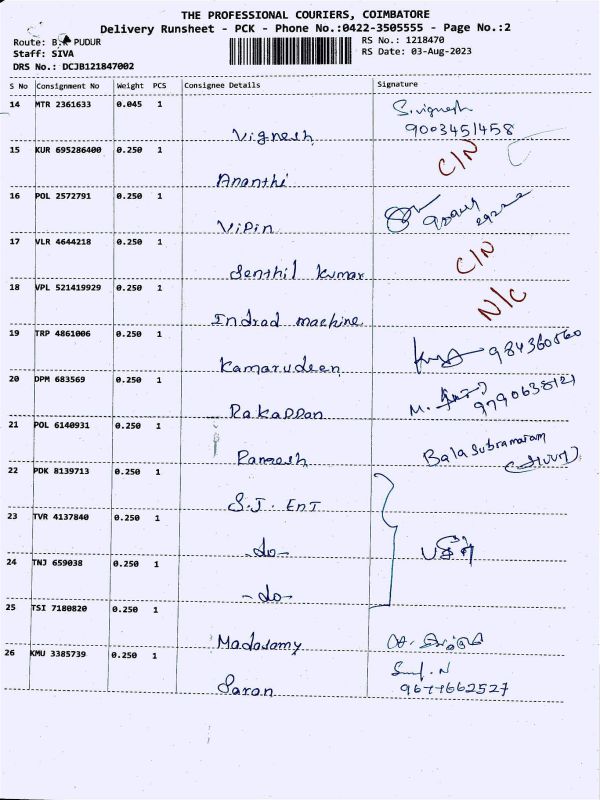 THE PROFESSIONAL COURIERS, COIMBATORE
Delivery Runsheet - PCK - Phone No.:0422-3505555 - Page No.:2
Route: B.K PUDUR
RS No.: 1218470
Staff: SIVA
RS Date: 03-Aug-2023
DRS No.: DCJB121847002
S No Consignment No Weight PCS Consignee Details Signature
14 MTR 2361633 0.045 1 Vignesh S.vignesh
9003451458
15 KUR 695286400 0.250 1 Ananthi C/N
16 POL 2572791 0.250 1 Vipin
17 VLR 4644218 0.250 1 Senthil Kumar C/N
18 VPL 521419929 0.250 1 Indrad machine N/C
19 TRP 4861006 0.250 1 Kamarudeen
20 DPM 683569 0.250 1 Rakappan M. 9790638121
21 POL 6140931 0.250 1 Ramesh Balasubramaram
22 PDK 8139713 0.250 1 S.J. Ent
23 TVR 4137840 0.250 1 -do-
24 TNJ 659038 0.250 1 -do-
25 TSI 7180820 0.250 1 Madasamy
26 KMU 3385739 0.250 1 Saran
9677662527